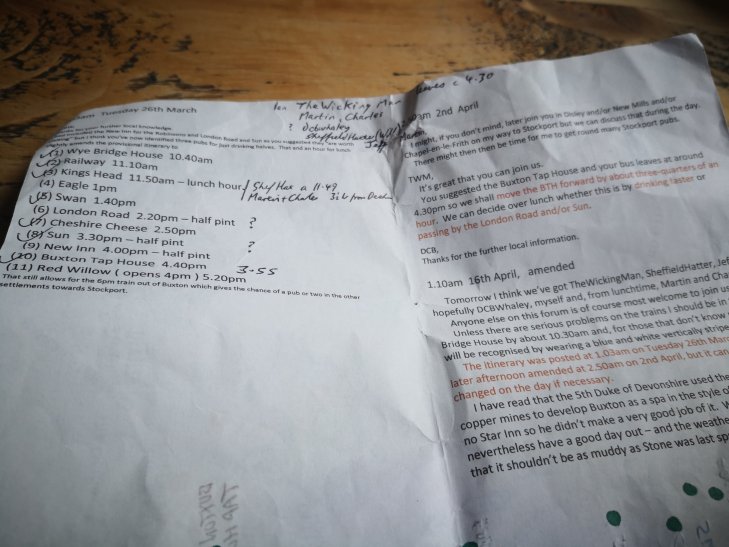 Tuesday 26th March
further local knowledge.
(1) Wye Bridge House 10.40am
(2) Railway 11.10am
(3) Kings Head 11.50am – lunch hour
(4) Eagle 1pm
(5) Swan 1.40pm
(6) London Road 2.20pm – half pint ?
(7) Cheshire Cheese 2.50pm
(8) Sun 3.30pm – half pint
(9) New Inn 4.00pm – half pint ?
(10) Buxton Tap House 4.40pm 3.55
(11) Red Willow ( opens 4pm ) 5.20pm
That still allows for the 6pm train out of Buxton which gives the chance of a pub or two in the other
settlements towards Stockport.
The Wicking Man
Martin, Charles
? Dcbwhaley
Sheffield Hatter
Jeff
11.49
Martin + Charles
leaves c 4.30
2nd April
I might, if you don't mind, later join you in Disley and/or New Mills and/or
Chapel-en-le-Frith on my way to Stockport but we can discuss that during the day.
There might then be time for me to get round many Stockport pubs.
TWM,
It's great that you can join us.
You suggested the Buxton Tap House and your bus leaves at around
4.30pm so we shall move the BTH forward by about three-quarters of an
hour. We can decide over lunch whether this is by drinking faster or
passing by the London Road and/or Sun.
DCB,
Thanks for the further local information.
1.10am 16th April, amended
Tomorrow I think we've got TheWickingMan, SheffieldHatter, Jef
hopefully DCBWhaley, myself and, from lunchtime, Martin and Cha
Anyone else on this forum is of course most welcome to join us
Unless there are serious problems on the trains I should be in
Bridge House by about 10.30am and, for those that don't know
will be recognised by wearing a blue and white vertically stripe
The Itinerary was posted at 1.03am on Tuesday 26th Mar
later afternoon amended at 2.50am on 2nd April, but it can
changed on the day if necessary.
I have read that the 5th Duke of Devonshire used the
copper mines to develop Buxton as a spa in the style of
no Star Inn so he didn't make a very good job of it.
nevertheless have a good day out – and the weathe
that it shouldn't be as muddy as Stone was last sp